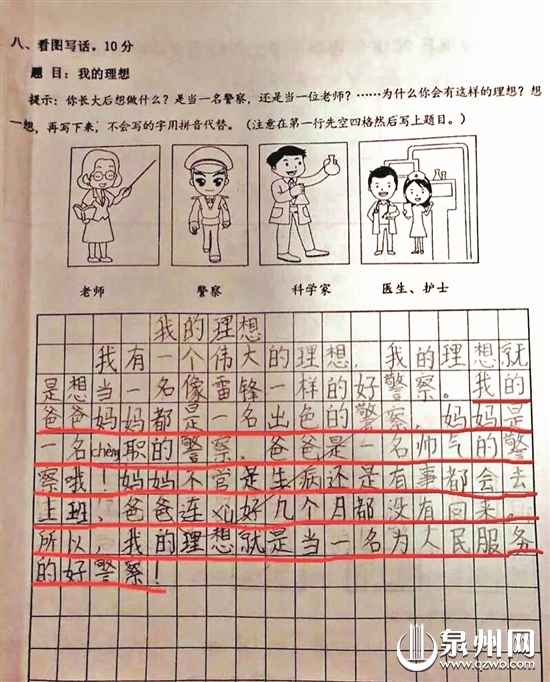 八、看图写话。10分
题 目：我的理想
提示：你长大后想做什么？是当一名警察，还是当一位老师？……为什么你会有这样的理想？想
一想，再写下来，不会写的字用拼音代替。（注意在第一行先空四格然后写上题目。）
老师 警察 科学家 医生、护士
我的理想
我有一个伟大的理想，我的理想就
是想当一名像雷锋一样的好警察。我的
爸爸妈妈都是一名出色的警察，妈妈是
一名chèng职的警察，爸爸是一名帅气的警
察哦！妈妈不管是生病还是有事都会去
上班，爸爸连xù好几个月都没有回来。
所以，我的理想就是当一名为人民服务
的好警察！
泉州网
www.qzwb.com